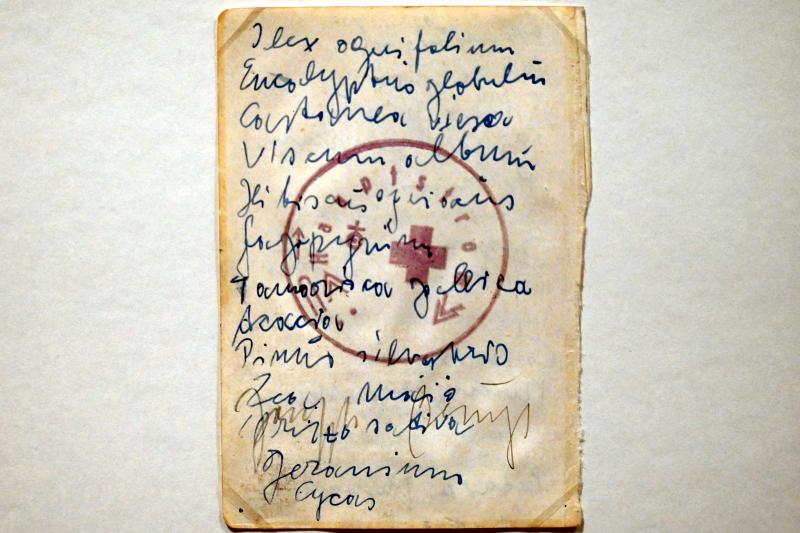 Ilex aquifolium
Eucalyptus globulus
Castanea vesca
Viscum album
Hibiscus syriacus
fagopyrum
Tamarisca gallica
Acaccia
Pinus silvestris
Zea Mais
Oriza sativa
Geranium
Cycas